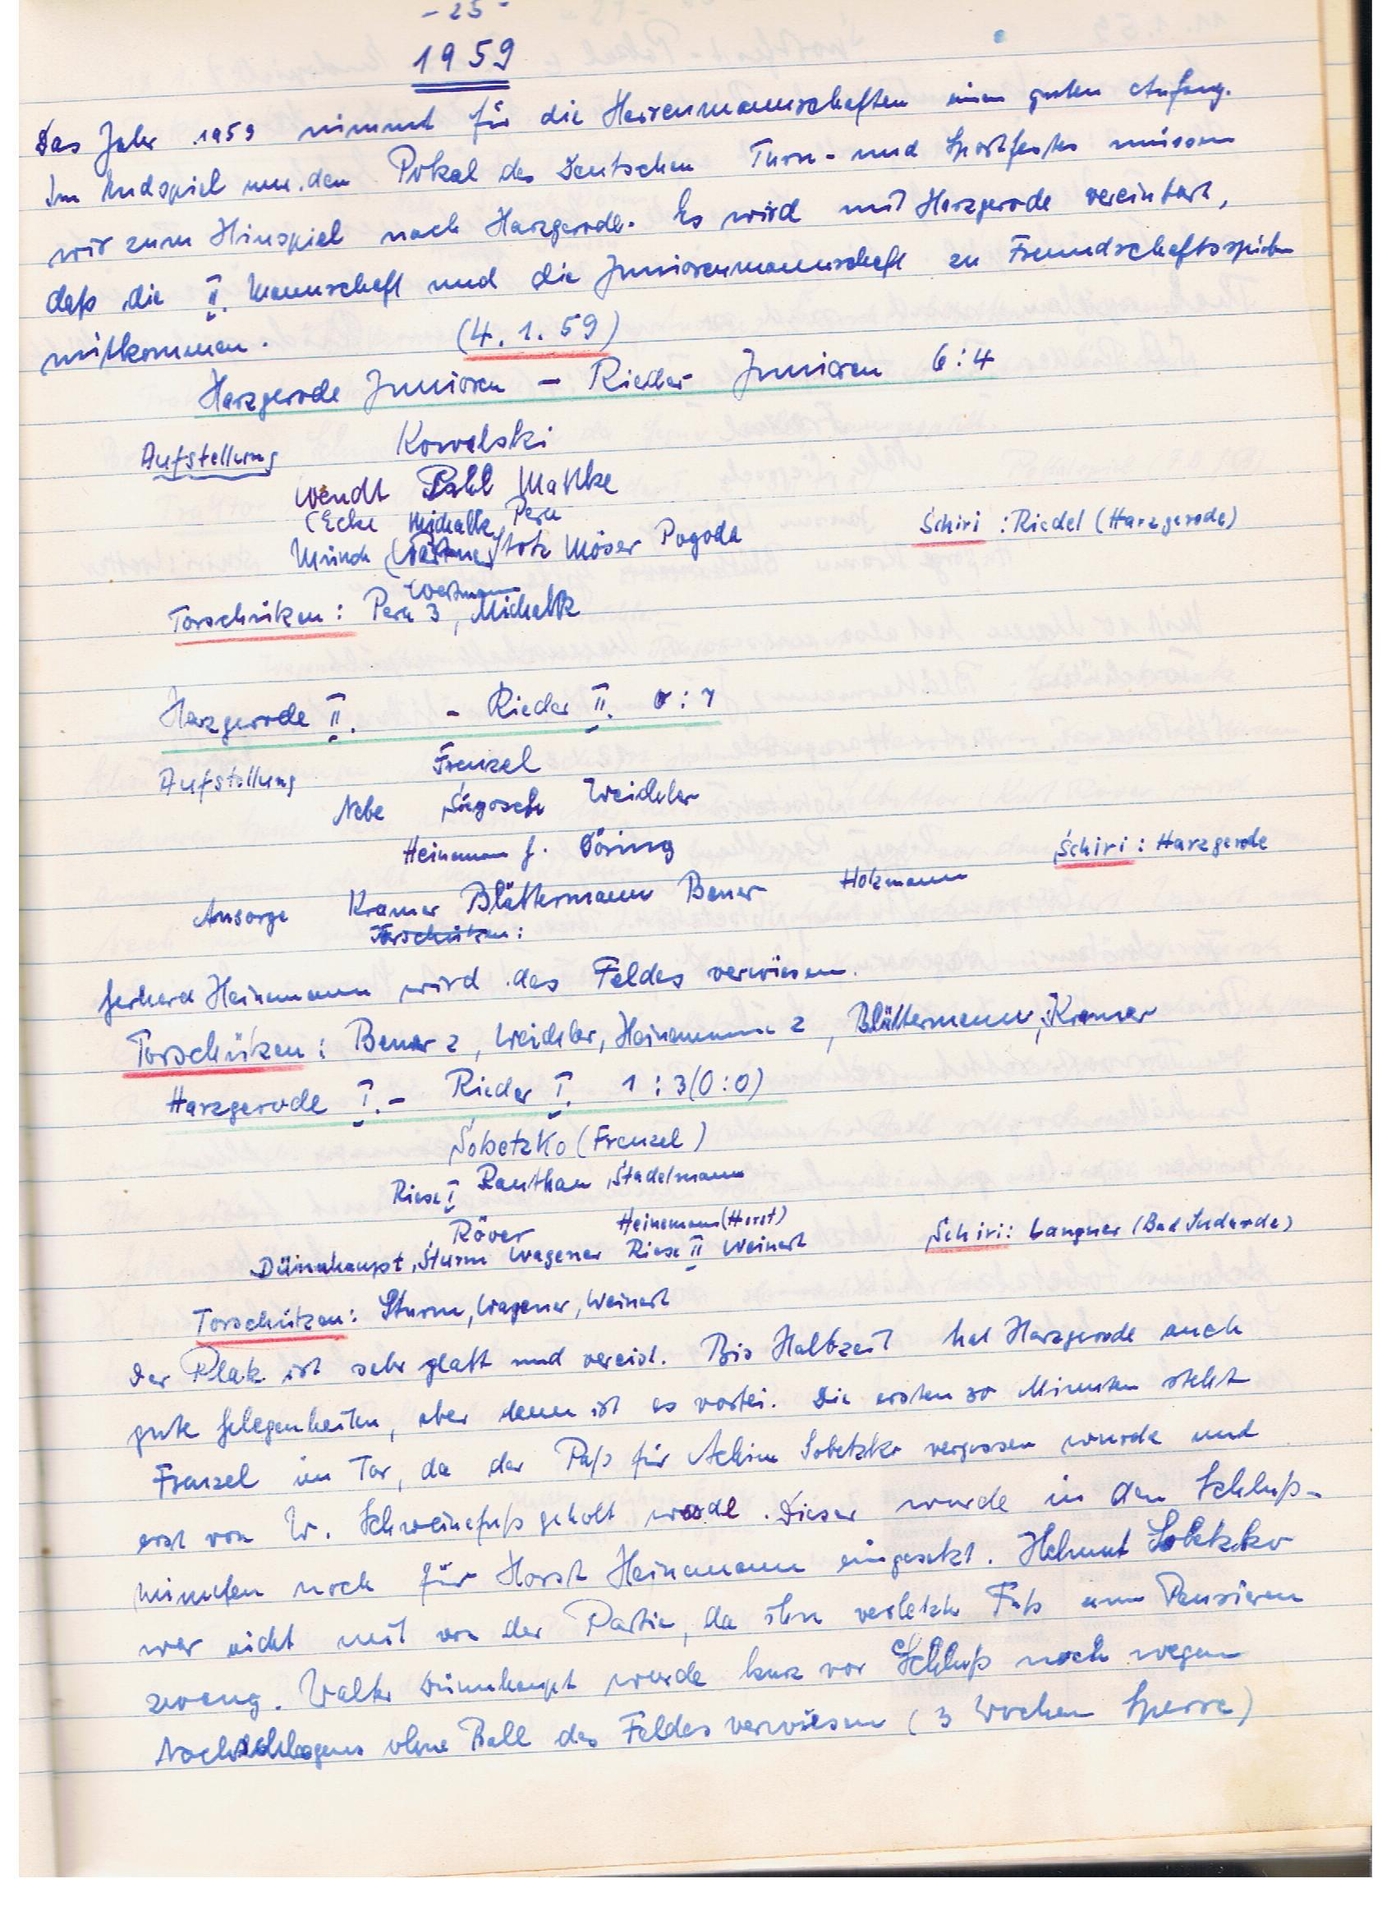 - 25 -
1959
Das Jahr 1959 nimmt für die Herrenmannschaften einen guten Anfang.
Im Endspiel um den Pokal des Deutschen Turn- und Sportfestes müssen
wir zum Hinspiel nach Harzgerode. Es wird mit Harzgerode vereinbart,
daß die II. Mannschaft und die Juniorenmannschaft zu Freundschaftsspielen
mitkommen. (4.1.59)
Harzgerode Junioren - Rieder Junioren 6:4
Aufstellung Kowalski
Wendt Pahl Mattke
(Ecke Michalk Pera
Münch Stotz Möser Pogoda Schiri : Riedel (Harzgerode)
Wertmann
Torschützen: Pera 3, Michalk
Harzgerode II. - Rieder II. 0:7
Aufstellung Frenzel
Nebe Sägosch Weideler
Heinemann G. Döring Schiri: Harzgerode
Ansorge Kramer Blättermann Bener Holzmann
Torschützen:
Gerhard Heinemann wird des Feldes verwiesen.
Torschützen: Bener 2, Weideler, Heinemann 2, Blättermann, Kramer
Harzgerode I. - Rieder I. 1:3 (0:0)
Sobetzko (Frenzel)
Riese I Ranthan Stadelmann
Röver Heinemann (Horst)
Dünnhaupt, Sturm Wagener Riese II Weinert Schiri: Langner (Bad Suderode)
Torschützen: Sturm, Wagener, Weinert
Der Platz ist sehr glatt und vereist. Bis Halbzeit hat Harzgerode auch
gute Gelegenheiten, aber dann ist es vorbei. Die ersten 30 Minuten steht
Frenzel im Tor, da der Paß für Achim Sobetzko vergessen wurde und
erst von W. Schweinefuß geholt wurde. Dieser wurde in den Schluß-
minuten noch für Horst Heinemann eingesetzt. Helmut Sobetzko
war nicht mit von der Partie, da ihn verletzter Fuß zum Pausieren
zwang. Walter Dünnhaupt wurde kurz vor Schluß noch wegen
Nachschlagens ohne Ball des Feldes verwiesen (3 Wochen Sperre)